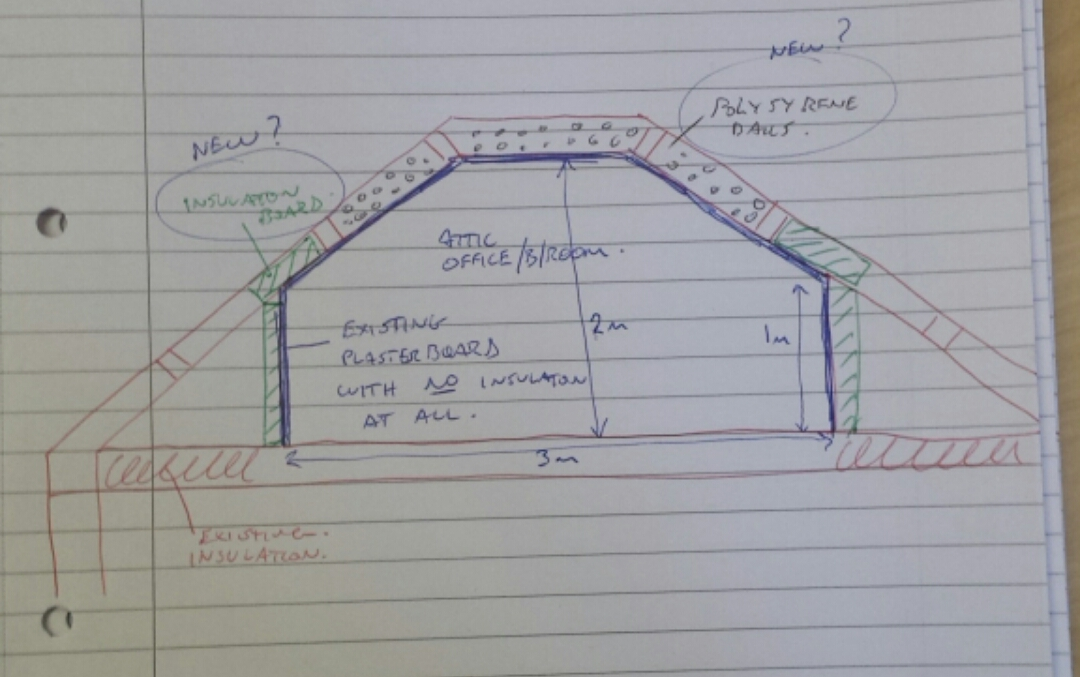 NEW?
NEW?
POLYSYRENE
BALLS.
INSULATON
BOARD.
ATTIC
OFFICE/B/ROOM.
EXISTING
PLASTERBOARD
WITH NO INSULATON
AT ALL.
2m
1m
3m
EXISTING.
INSULATION.